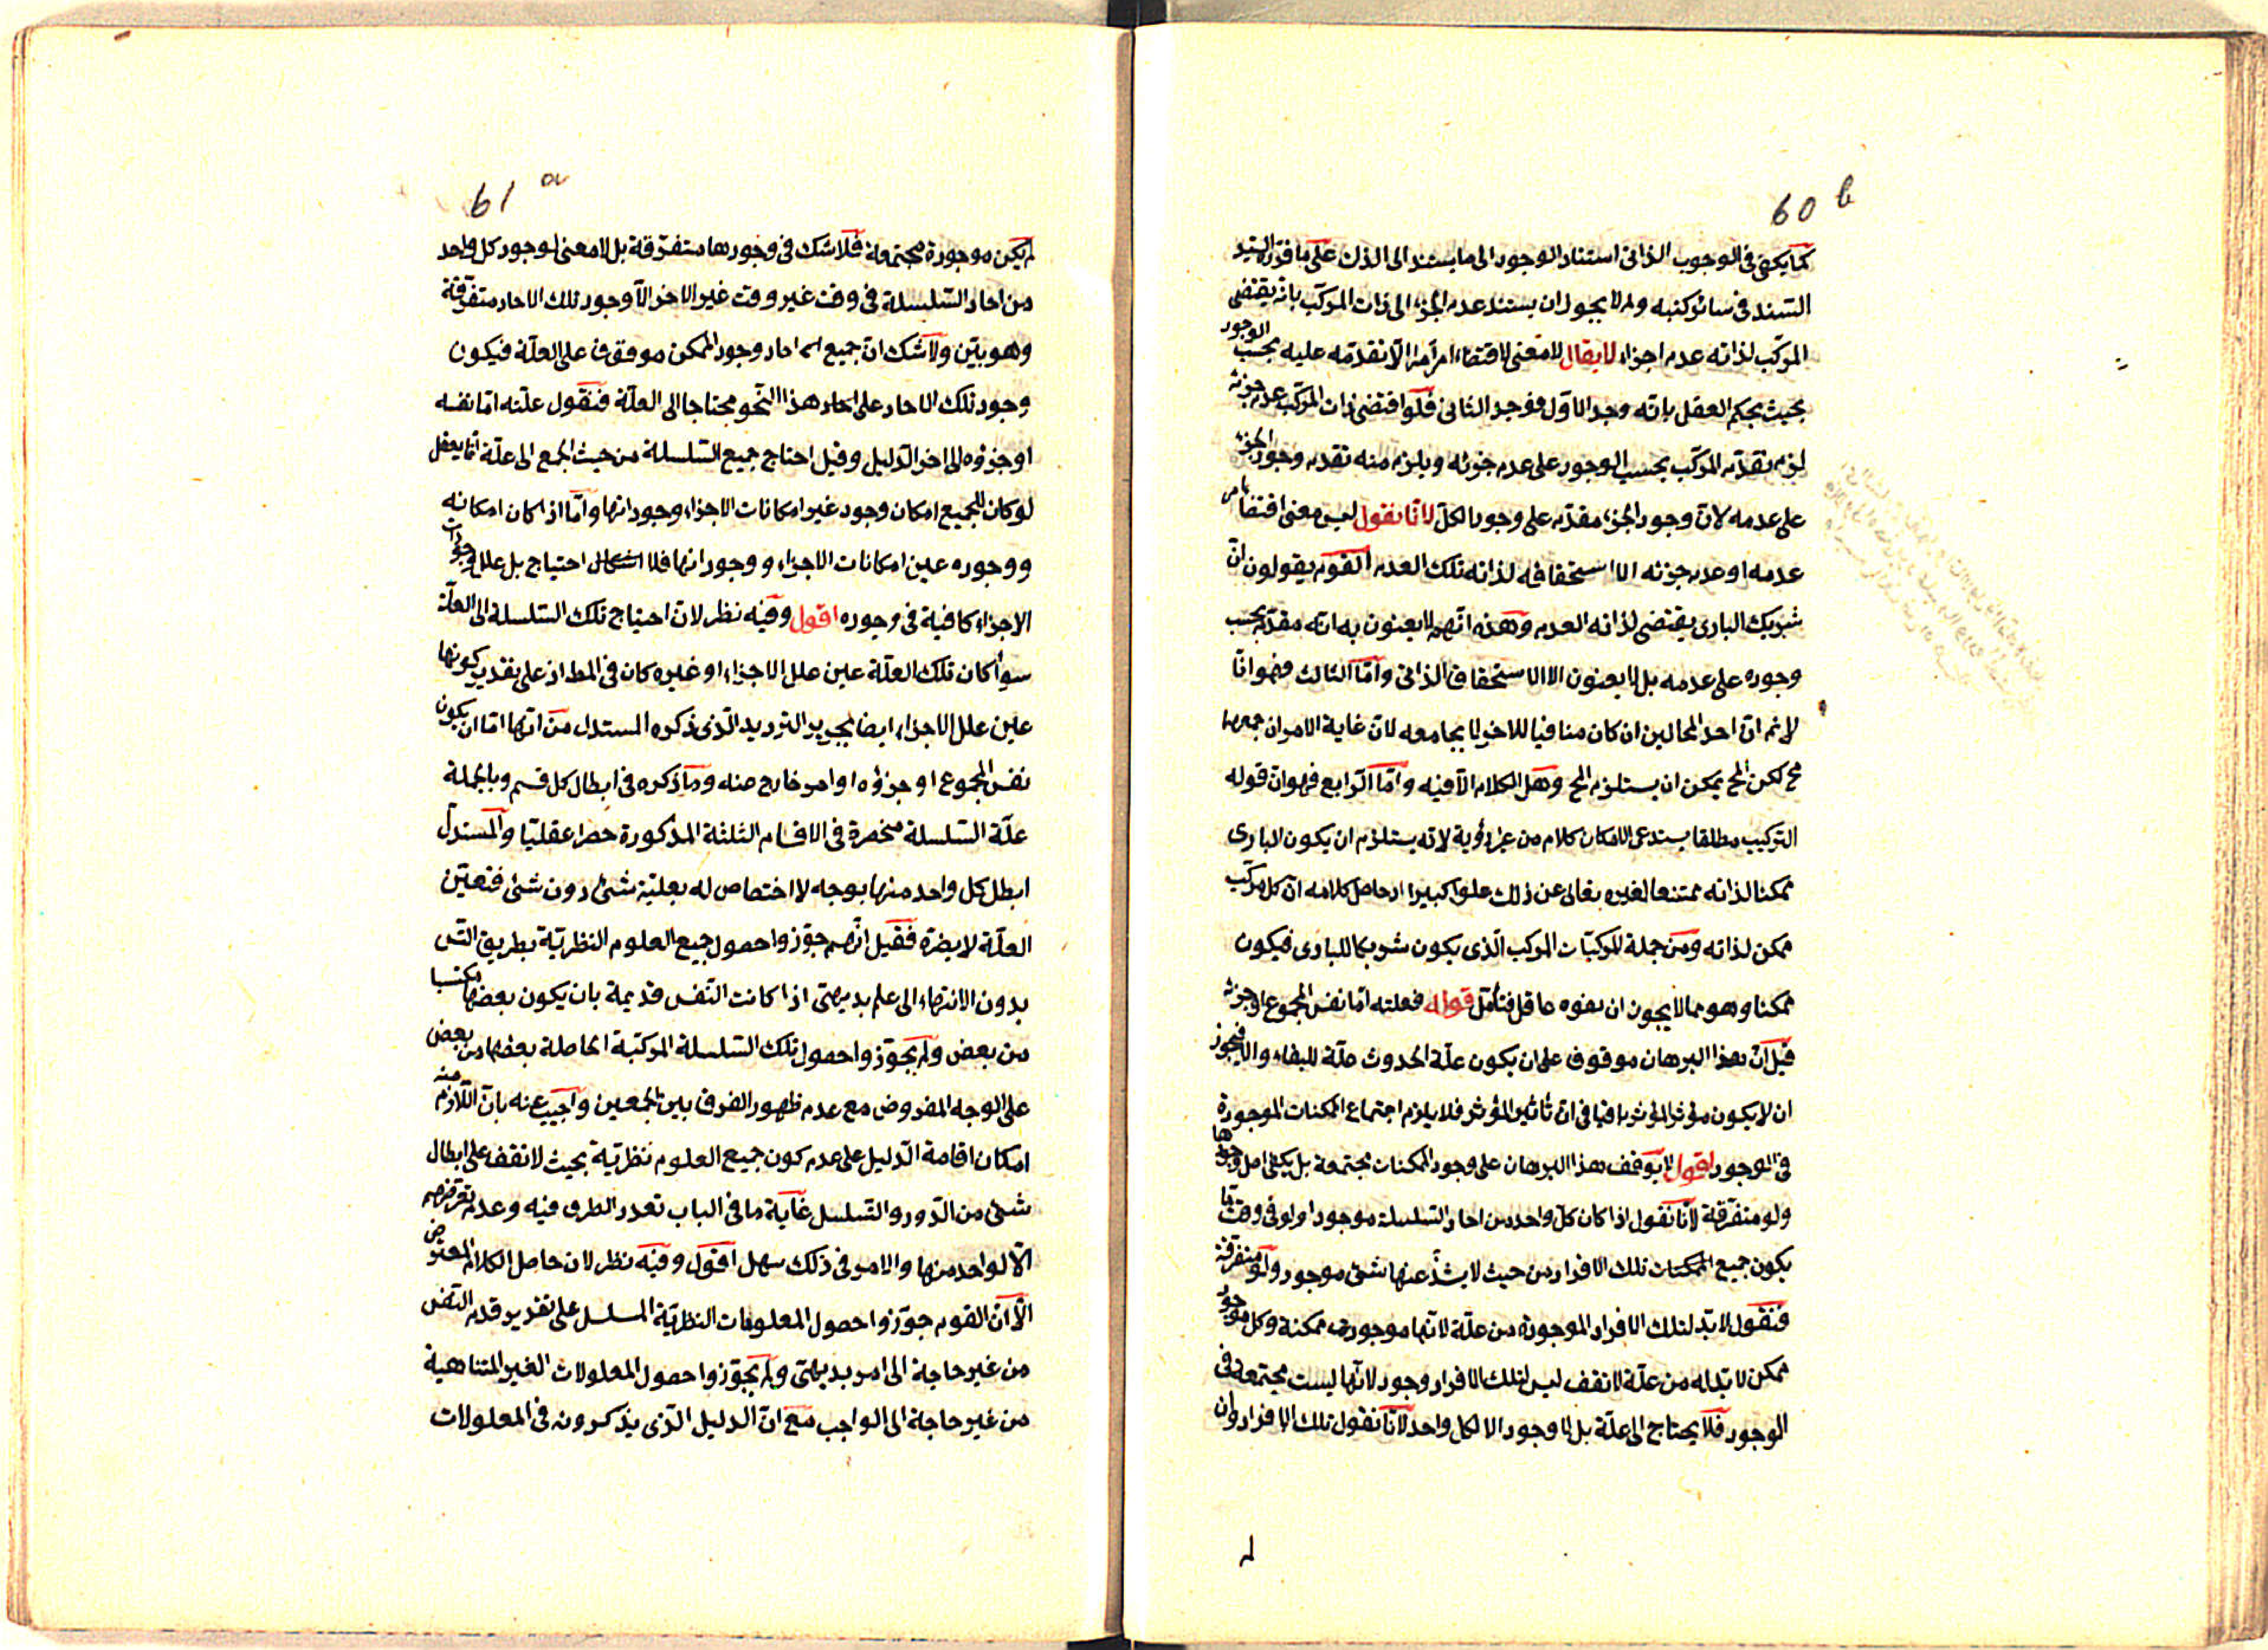 60 b
كما يكفى فى الوجوب الذاتى استناد الوجود الى ما يستند الى الذات على ما قرره السيد
السند فى سائر كتبه ولم لا يجوز ان يستند عدم الجزء الى ذات المركب بانه يقتضى
المركب لذاته عدم اجزاء لا يقال لا معنى لاقتضاء امر امرا الا تقدمه عليه بحسب الوجود
بحيث يحكم العقل بانه وجد الاول فوجد الثانى فلو اقتضى ذات المركب عدم جزئه
لزم تقدم المركب بحسب الوجود على عدم جزئه ويلزم منه تقدم وجود الجزء
على عدمه لان وجود الجزء مقدم على وجود الكل لانا نقول ليس معنى اقتضاء
عدمه او عدم جزئه الا استحقاقه لذاته تلك العدم القوم يقولون ان
شريك البارى يقتضى لذاته العدم وهذه انهم لا يعنون به انه مقدم بحسب
وجوده على عدمه بل لا يعنون الا الاستحقاق الذاتى واما الثالث فهو انا
لا نم ان احد المحالين ان كان منافيا للاخر لا يجامعه لان غاية الامر ان جمعهما
مح لكن المح يمكن ان يستلزم المح وهل الكلام الا فيه واما الرابع فهو ان قوله
التركيب مطلقا يستدعى الامكان كلام من غير رؤية لانه يستلزم ان يكون البارى
ممكنا لذاته ممتنعا لغيره تعالى عن ذلك علوا كبيرا اذ حاصل كلامه ان كل مركب
ممكن لذاته ومن جملة المركبات المركب الذى يكون شريكا للبارى فيكون
ممكنا وهو مما لا يجوز ان يفوه عاقل فتأمل قوله فعلته اما نفس المجموع او جزئه
قيل ان هذا البرهان موقوف على ان يكون علة الحدوث علة للبقاء والا فيجوز
ان لا يكون مؤثر المؤثر باقيا فى ان تأثير المؤثر فلا يلزم اجتماع الممكنات الموجودة
فى الوجود اقول لا يتوقف هذا البرهان على وجود الممكنات مجتمعة بل يكفى اصل وجودها
ولو متفرقة لانا نقول اذا كان كل واحد من احاد السلسلة موجودا ولو فى وقت ما
يكون جميع الممكنات تلك الافراد من حيث لا يشذ عنها شئ موجود ولو متفرقة
فنقول لا بد لتلك الافراد الموجودة من علة لانها موجودة ممكنة وكل موجود
ممكن لا بد له من علة لا نقف ليس لتلك الافراد وجود لانها ليست مجتمعة فى
الوجود فلا يحتاج الى علة بل لا وجود الا لكل واحد لانا نقول تلك الافراد وان
لم
61 a
لم يكن موجودة مجتمعة فلا شك فى وجودها متفرقة بل لا معنى لوجود كل واحد
من احاد السلسلة فى وقت غير وقت غير الاخر الا وجود تلك الاحاد متفرقة
وهو بين ولا شك ان جميع احاد وجود الممكن موقوف على العلة فيكون
وجود تلك الاحاد على احاد هذا النحو محتاجا الى العلة فنقول علته اما نفسه
او جزؤه الى اخر الدليل وقيل احتاج جميع السلسلة من حيث الجمع الى علة انما يعقل
لو كان للجميع امكان وجود غير امكانات الاجزاء وجوداتها واما اذا كان امكانه
ووجوده عين امكانات الاجزاء ووجوداتها فلا احتياج بل علل وجودات
الاجزاء كافية فى وجوده اقول وفيه نظر لان احتياج تلك السلسلة الى العلة
سواء كان تلك العلة عين علل الاجزاء او غيره كان فى المط اذ على تقدير كونها
عين علل الاجزاء ايضا يجرى الترديد الذى ذكره المستدل من انها اما ان يكون
نفس المجموع او جزؤه او امر خارج منه وما ذكره فى ابطال كل قسم وبالجملة
علة السلسلة منحصرة فى الاقسام الثلثة المذكورة حصرا عقليا والمستدل
ابطل كل واحد منها بوجه لا اختصاص له بعلية شئ دون شئ فتعين
العلة لا يضره فقيل انهم جوزوا حصول جميع العلوم النظرية بطريق التس
بدون الانتهاء الى علم بديهى اذا كانت النفس قديمة بان يكون بعضها مكتسبا
من بعض ولم يجوزوا حصول تلك السلسلة المركبة الحاصلة بعضها من بعض
على الوجه المفروض مع عدم ظهور الفرق بين الجمعين واجيب عنه بان اللازم منه
امكان اقامة الدليل على عدم كون جميع العلوم نظرية بحيث لا نقف على ابطال
شئ من الدور والتسلسل غاية ما فى الباب تعدد الطرق فيه وعدم تعرضهم
الا لواحد منها والامر فى ذلك سهل اقول وفيه نظر لان حاصل الكلام المعترض
الا ان القوم جوزوا حصول المعلومات النظرية المسلسل على تقدير قدم النفس
من غير حاجة الى امر بديهى ولم يجوزوا حصول المعلولات الغير المتناهية
من غير حاجة الى الواجب مع ان الدليل الذى يذكرونه فى المعلولات